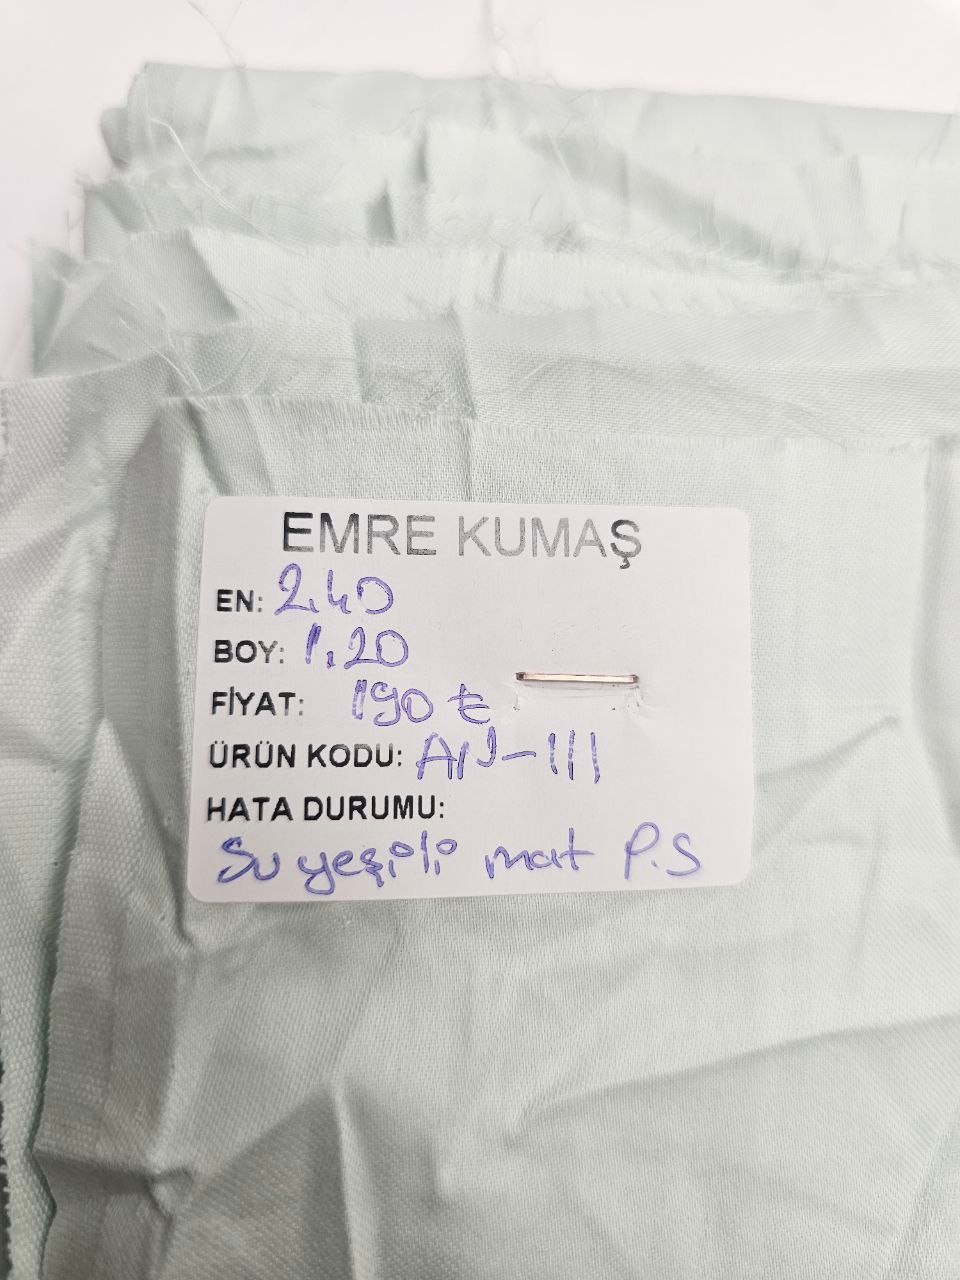 EMRE KUMAŞ
EN: 2.40
BOY: 1.20
FİYAT: 190 ₺
ÜRÜN KODU: AN-111
HATA DURUMU:
Su yeşili mat P.S